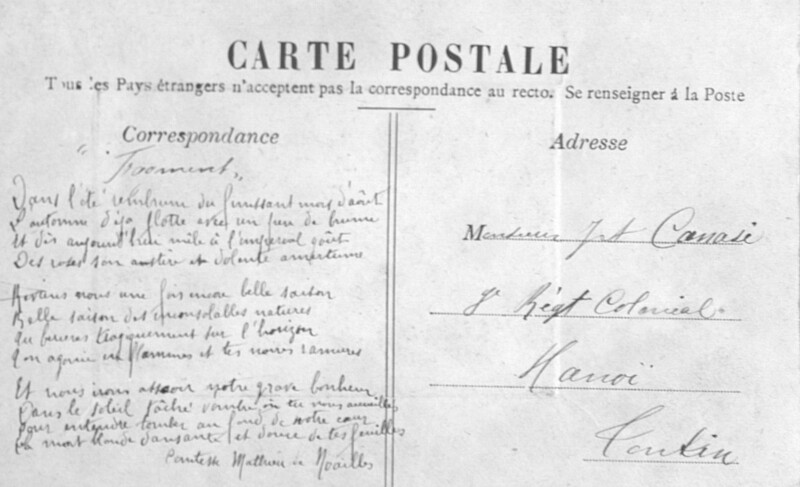 CARTE POSTALE
Tous les Pays étrangers n'acceptent pas la correspondance au recto. Se renseigner à la Poste
Correspondance
Adresse
"Froment"
Dans l'été du finissant mois d'août
L'automne déja flotte avec un peu de brume
Et dès aujourd'hui mêle à l'impérial goût
Des roses son austère et dolente amertume
nous une fois encor belle saison
Belle saison des inconsolables natures
Qui tragiquement sur l'horizon
Ton agonie en flammes et tes noires ramures
Et nous irons asseoir notre grave bonheur
Dans le soleil où tu nous accueilles
Pour entendre tomber au fond de notre cœur
La mort blonde dansante et douce de tes feuilles
Comtesse Mathieu de Noailles
Monsieur Canasi
9e Régt Colonial
Hanoï
Tonkin